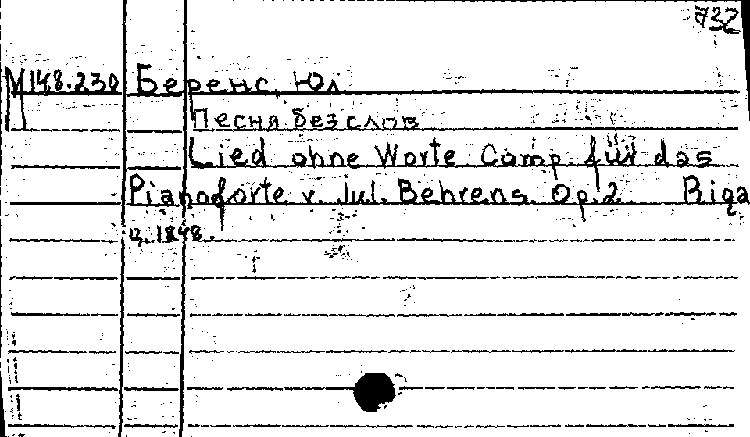 732
М148.230 Беренс, Юл
Песня без слов
Lied ohne Worte Comp. für das
Pianoforte v. Jul. Behrens. Op. 2. Riga
ц. 1848.